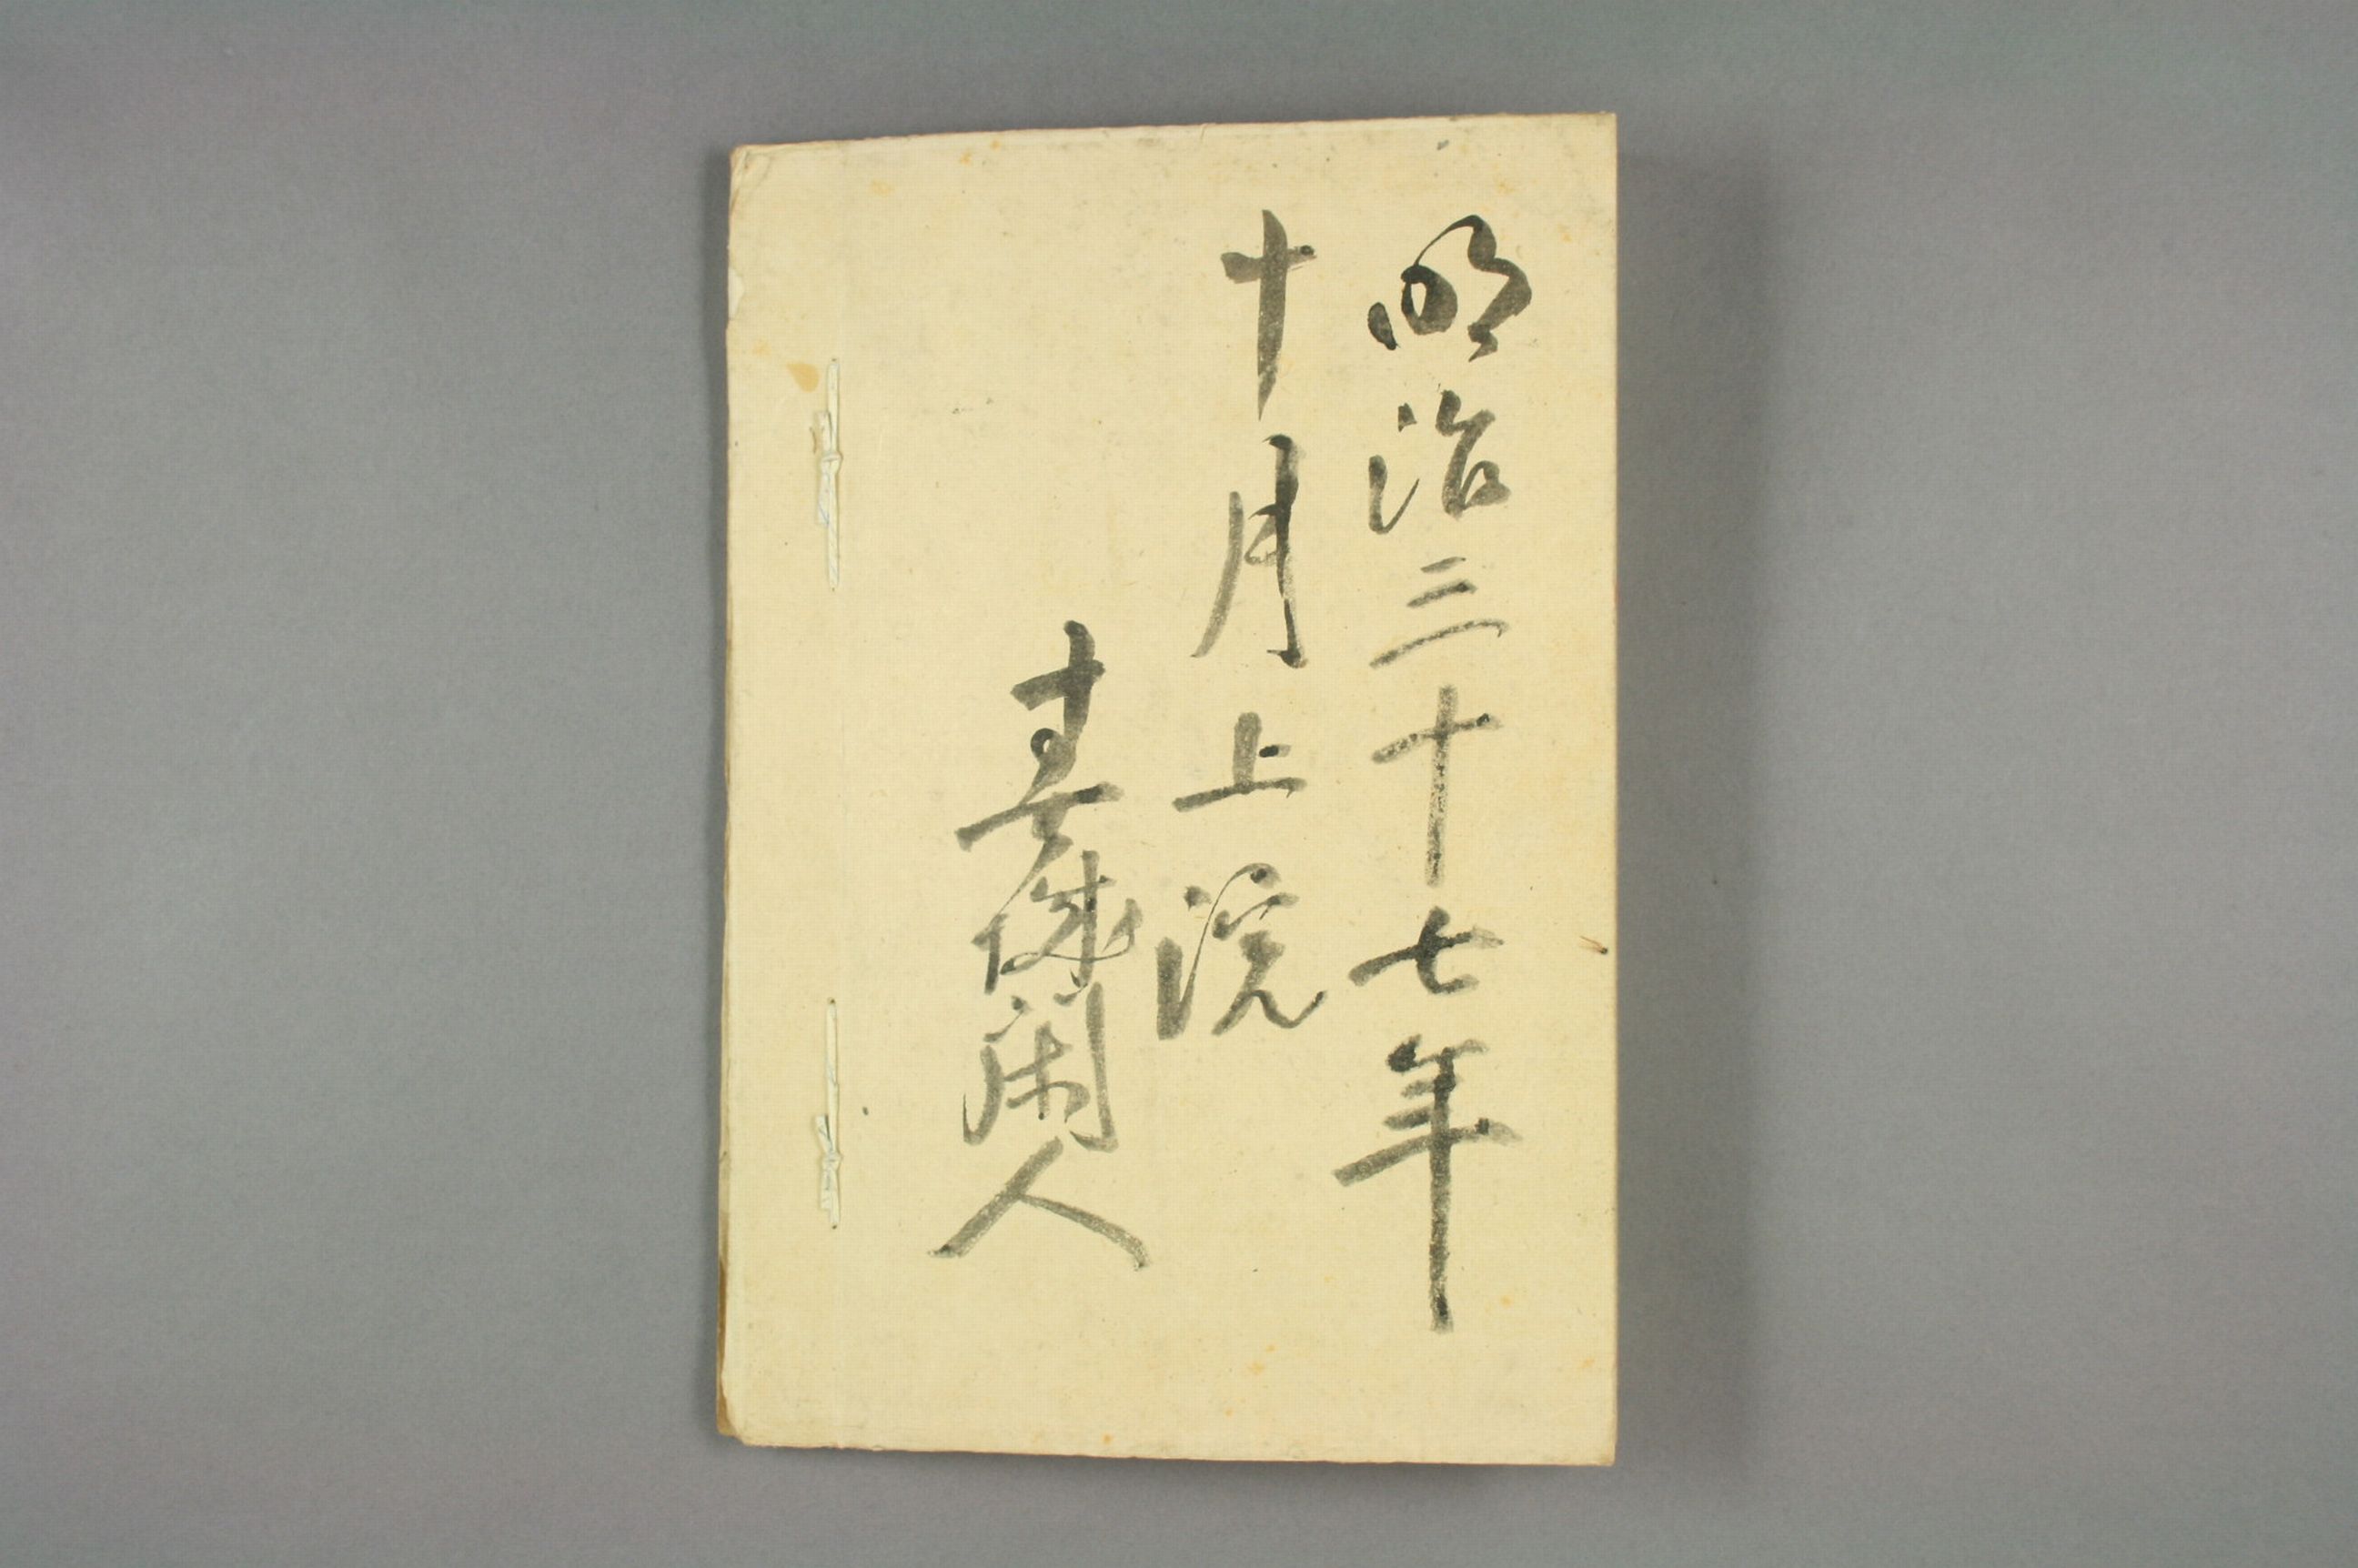 明治三十七年
十月上浣
春城閑人